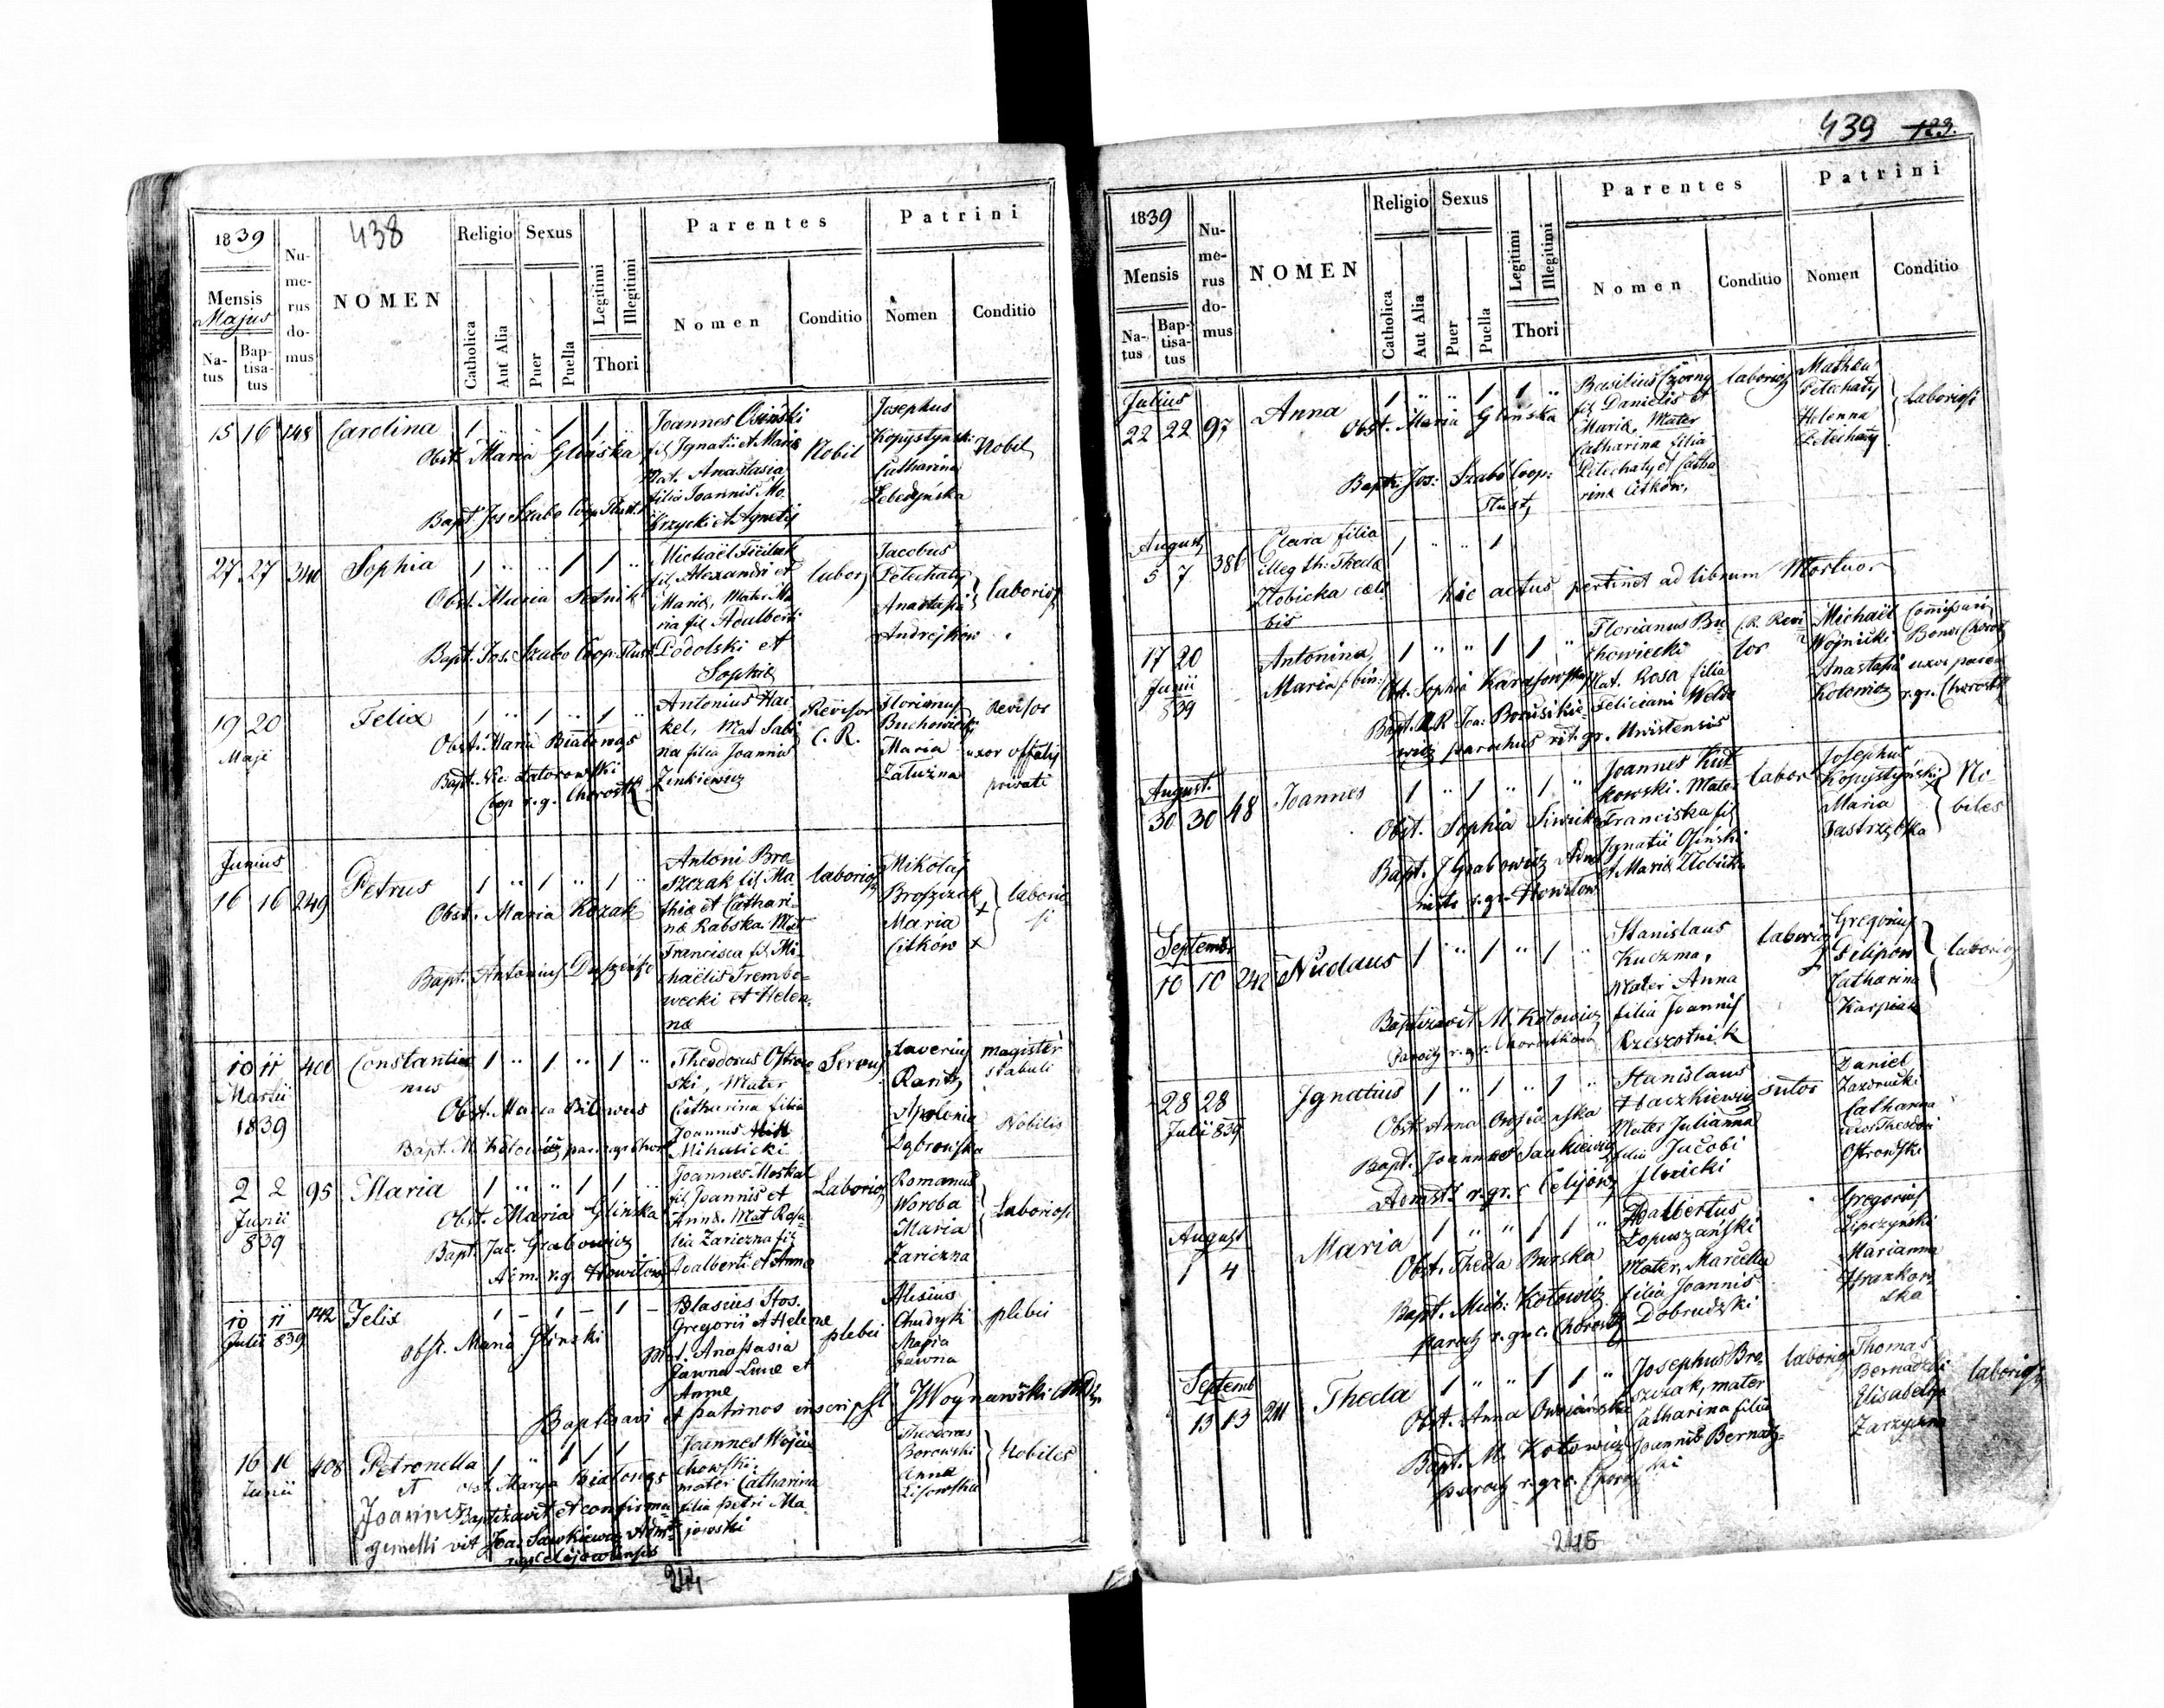 438
1839
Mensis
Majus
Natus
Baptisatus
Numerus domus
NOMEN
Religio
Catholica
Aut Alia
Sexus
Puer
Puella
Legitimi
Illegitimi
Thori
Parentes
Nomen
Conditio
Patrini
Nomen
Conditio
15 16 148 Carolina 1 " " 1 1 "
Obst. Maria Glińska
Bapt. Jos Szabo Coop.
Joannes Osiński
fil Ignatii et Maria
Mat. Anastasia
filia Joannis Mo-
krzycki et Agnetis
Nobil
Josephus
Kopystyński
Catharina
Lebedyńska
Nobil
27 27 340 Sophia 1 " " 1 1 "
Obst. Maria
Bapt. Jos. Szabo Coop.
Michaël
fil Alexandri et
Maria, Mater Ma
ria fil Adalberti
Podolski et
Sophia
labor
Jacobus
Petechaty
Anastasia
Andrejków
laborios
19 20
Maji
Felix 1 " 1 " 1 "
Obst. Maria Białowąs
Bapt. Nic. Zatorowski
Coop r.g. Chorostk
Antonius Hai-
kel, Mat Sabi
na filia Joannis
Zenkiewicz
Revisor
C. R.
Florianus
Buchowiecki
Maria
Zaturzna
Revisor
uxor
privati
Junius
16 16 249 Petrus 1 " 1 " 1 "
Obst. Maria Kozak
Bapt. Antonius
Antoni Bro-
szczak fil Ma
thia et Cathari-
na Rabska. Mat
Francisca fil Mi-
chaelis Trembo-
wecki et Helen-
na
laborios
Mikołaj
Broszczak
Maria +
Citków x
laborio
si
10 11 400
Martii
1839
Constanti
nus 1 " 1 " 1 "
Obst. Maria
Bapt. M. Kotowicz par. r.gr. Chor
Theodorus Ostrow
ski, Mater
Catharina filia
Joannis
Mihalicki
Servus
Xaverius
Apolonia
Dąbrowska
magister
stabuli
Nobilis
2 2 95
Junii
839
Maria 1 " " 1 1 "
Obst. Maria Glińska
Bapt. Jac. Grabowicz
Adm. r.g. Howiłow
Joannes Moskal
fil Joannis et
Anna. Mat Rosa
lia Zariczna fil
Adalberti et Anna
Laborios
Romanus
Woroba
Maria
Zariczna
Laboriosi
10 11 142
Julii 839
Felix 1 – 1 – 1 –
obst. Maria Glinski
Blasius Stos.
Gregorii et Helene
Mat. Anastasia
Jawna Luce et
Anne
plebei
Alisius
Chudyk
Maria
Jawna
plebei
Baptisavi et patrinos inscripsi JWoynawski
16 16 408
Junii
Petronella 1 " 1 1 1
et
Joannes
gemelli
obst. Marya Białowąs
Baptizavit et confirma
vit Joa. Sawkiewicz Admst
Joannes Wojcie
chowski.
mater Catharina
filia Petri Ma-
jowski
Theodorus
Borowski
Anna
Lisowska
Nobiles
244
439
123.
1839
Mensis
Natus
Baptisatus
Numerus domus
NOMEN
Religio
Catholica
Aut Alia
Sexus
Puer
Puella
Legitimi
Illegitimi
Thori
Parentes
Nomen
Conditio
Patrini
Nomen
Conditio
Julius
22 22 97 Anna 1 " " 1 1 "
Obst. Maria Glińska
Bapti: Jos: Szabo Coop:
Basilius Czorny
fil Danielis et
Maria, Mater
Catharina filia
Petechaty et Catha
rina Citków,
laborios
Matheus
Petechaty
Helenna
Petechaty
Laboriosi
August
5 7 386 Clara filia
illeg th: Theda
Złobicka cæle
bis
1 " " 1
hic actus pertinet ad librum Mortuor
17 20
Junii
839
Antonina
Maria 1 " " 1 1 "
Obst. Sophia Karasowska
parochus rit. gr. Uwistensis
Florianus Bu-
chowiecki
Mat. Rosa filia
Feliciani
C. R. Revi-
sor
Michaël
Wojnicki
Anastasia uxor paro
Kotowicz r.gr. Chorostk
August.
30 30 48 Joannes 1 " 1 " 1 "
Obst. Sophia
Bapt. J Grabowicz Adm
r.gr. Howiłow
Joannes Kut
kowski. Mater
Franciska fil
Ignatii Osiński
et Maria Złobicka
labor
Josephus
Kopystyński
Maria
Jastrzębska
No
biles
Septembr
10 10 242 Nicolaus 1 " 1 " 1 "
Baptizavit M Kotowicz
Paroch r.gr. Chorostkow
Stanislaus
Kuczma,
Mater Anna
filia Joannis
Rzeszotnik
laborios
Gregorius
Pilipow
Catharina
Karpiak
laborios
28 28
Julii 839
Ignatius 1 " 1 " 1 "
Obst. Anna
Bapt. Joannes Saukiewicz
Admst r.gr. c Celijow
Stanislaus
Tkaczkiewicz
Mater Julianna
filia Jacobi
Ilnicki
sutor
Daniel
Zazdrucki
Catharina
uxor Theodori
Ostrowski
August
1 4 Maria 1 " " 1 1 "
Obst. Thecla Burska
Bapt. Mich: Kotowicz
paroch r.gr.c. Chorostk
Adalbertus
Łopuszański
Mater, Marcella
filia Joannis
Dobrudzki
Gregorius
Lipczyński
Marianna
Hrankow
ska
Septemb
13 13 241 Thecla 1 " " 1 1 "
Obst. Anna
Bapt. M. Kotowicz
paroch r.gr.c. Chorost
Josephus Bro-
szczak, mater
Catharina filia
Joannis Bernadz-
ki
laborios
Thomas
Bernadzki
Elisabetha
Zarzyczna
laborios
245